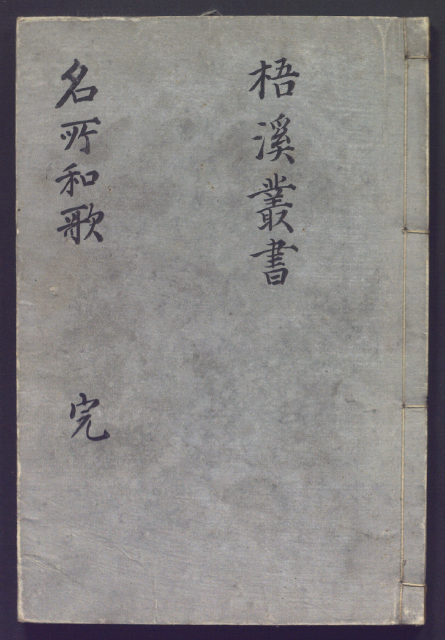 梧溪叢書
名所和歌 完